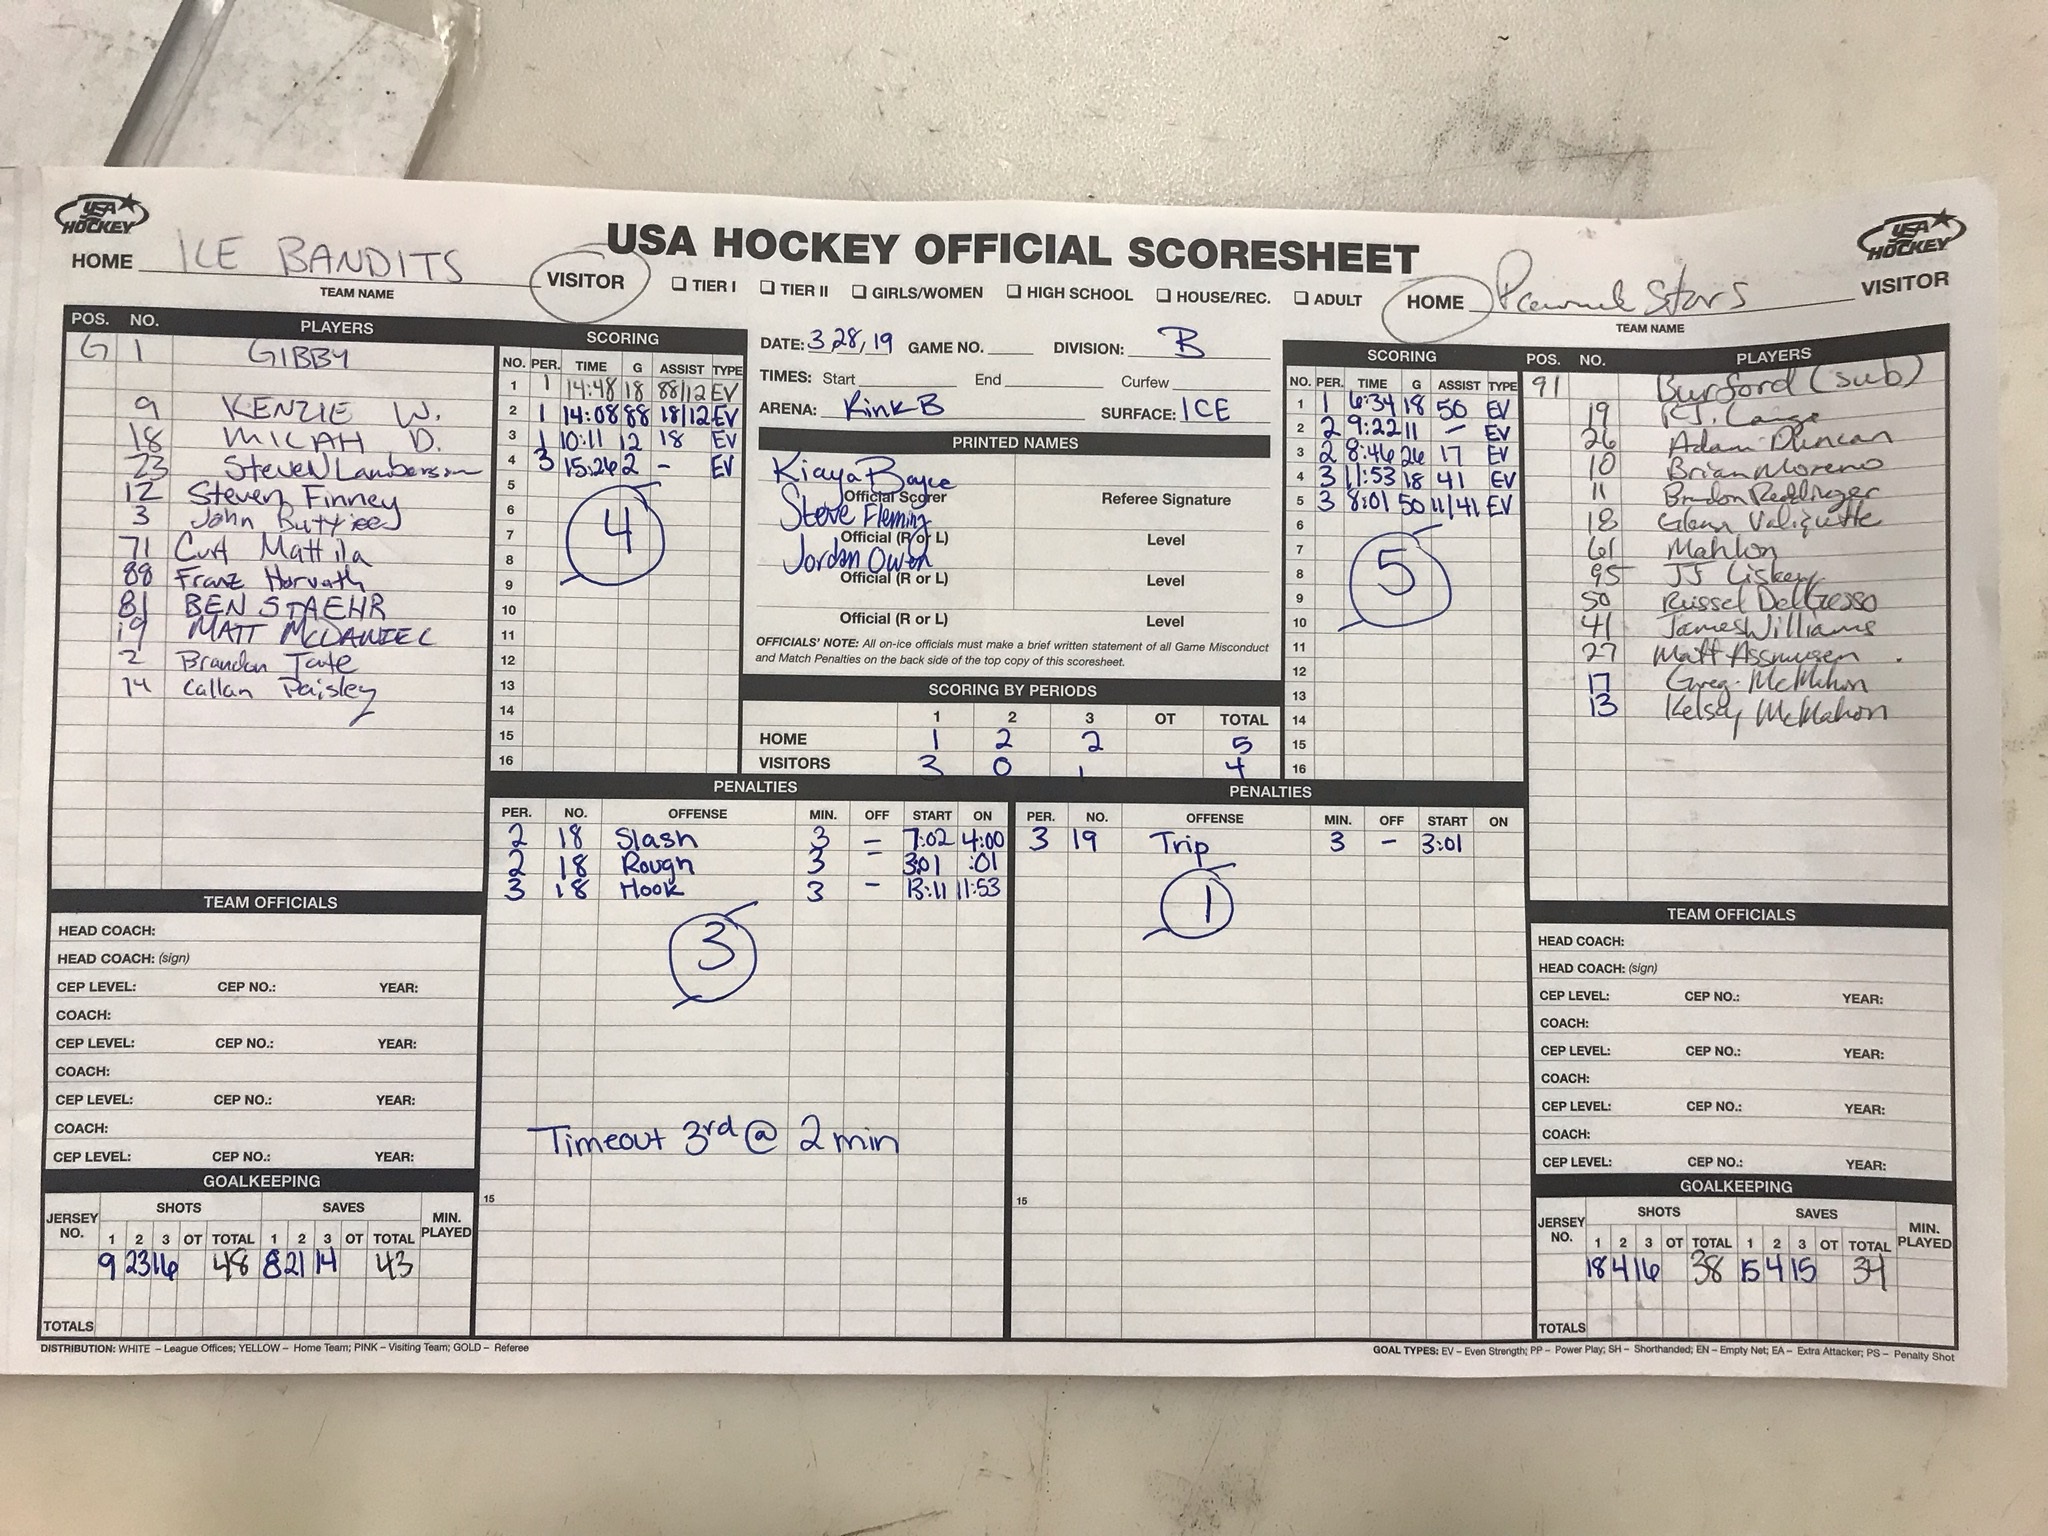 USA HOCKEY
USA HOCKEY OFFICIAL SCORESHEET
USA HOCKEY
HOME ICE BANDITS VISITOR
TEAM NAME
TIER I TIER II GIRLS/WOMEN HIGH SCHOOL HOUSE/REC. ADULT
HOME Stars VISITOR
TEAM NAME
POS. NO. PLAYERS
G 1 GIBBY
9 KENZIE W.
18 MICAH D.
23 Steven Lamberson
12 Steven Finney
3 John
71 Curt Mattila
88 Franz Horvath
81 BEN STAEHR
19 MATT MCDANIEL
2 Brandon Tate
14 Callan Paisley
SCORING
NO. PER. TIME G ASSIST TYPE
1 1 14:48 18 88/12 EV
2 1 14:08 88 18/12 EV
3 1 10:11 12 18 EV
4 3 15:26 2 - EV
5
6
7
8
9
10
11
12
13
14
15
16
4
DATE: 3,28,19 GAME NO. DIVISION: B
TIMES: Start End Curfew
ARENA: Rink B SURFACE: ICE
PRINTED NAMES
Kiaya Boyce
Official Scorer Referee Signature
Steve Fleming
Official (R or L) Level
Jordan Owen
Official (R or L) Level
Official (R or L) Level
OFFICIALS' NOTE: All on-ice officials must make a brief written statement of all Game Misconduct
and Match Penalties on the back side of the top copy of this scoresheet.
SCORING BY PERIODS
1 2 3 OT TOTAL
HOME 1 2 2 5
VISITORS 3 0 1 4
SCORING
NO. PER. TIME G ASSIST TYPE
1 1 6:34 18 50 EV
2 2 9:22 11 - EV
3 2 8:46 26 17 EV
4 3 11:53 18 41 EV
5 3 8:01 50 11/41 EV
6
7
8
9
10
11
12
13
14
15
16
5
POS. NO. PLAYERS
91 Burford (sub)
19 R.J. Lange
26 Adam Duncan
10 Brian Moreno
11 Brandon Redlinger
18 Glenn Valiquette
61 Mahlon
95 JJ Liskey
50 Russel DelGrosso
41 James Williams
27 Matt Assmusen
17 Greg McMahon
13 Kelsey McMahon
PENALTIES
PER. NO. OFFENSE MIN. OFF START ON
2 18 Slash 3 - 7:02 4:00
2 18 Rough 3 - 3:01 :01
3 18 Hook 3 - 13:11 11:53
3
Timeout 3rd @ 2 min
15
PENALTIES
PER. NO. OFFENSE MIN. OFF START ON
3 19 Trip 3 - 3:01
1
15
TEAM OFFICIALS
HEAD COACH:
HEAD COACH: (sign)
CEP LEVEL: CEP NO.: YEAR:
COACH:
CEP LEVEL: CEP NO.: YEAR:
COACH:
CEP LEVEL: CEP NO.: YEAR:
COACH:
CEP LEVEL: CEP NO.: YEAR:
GOALKEEPING
JERSEY NO. SHOTS SAVES MIN. PLAYED
1 2 3 OT TOTAL 1 2 3 OT TOTAL
9 23 16 48 8 21 14 43
TOTALS
TEAM OFFICIALS
HEAD COACH:
HEAD COACH: (sign)
CEP LEVEL: CEP NO.: YEAR:
COACH:
CEP LEVEL: CEP NO.: YEAR:
COACH:
CEP LEVEL: CEP NO.: YEAR:
COACH:
CEP LEVEL: CEP NO.: YEAR:
GOALKEEPING
JERSEY NO. SHOTS SAVES MIN. PLAYED
1 2 3 OT TOTAL 1 2 3 OT TOTAL
18 4 16 38 15 4 15 34
TOTALS
DISTRIBUTION: WHITE – League Offices; YELLOW – Home Team; PINK – Visiting Team; GOLD – Referee
GOAL TYPES: EV – Even Strength; PP – Power Play; SH – Shorthanded; EN – Empty Net; EA – Extra Attacker; PS – Penalty Shot